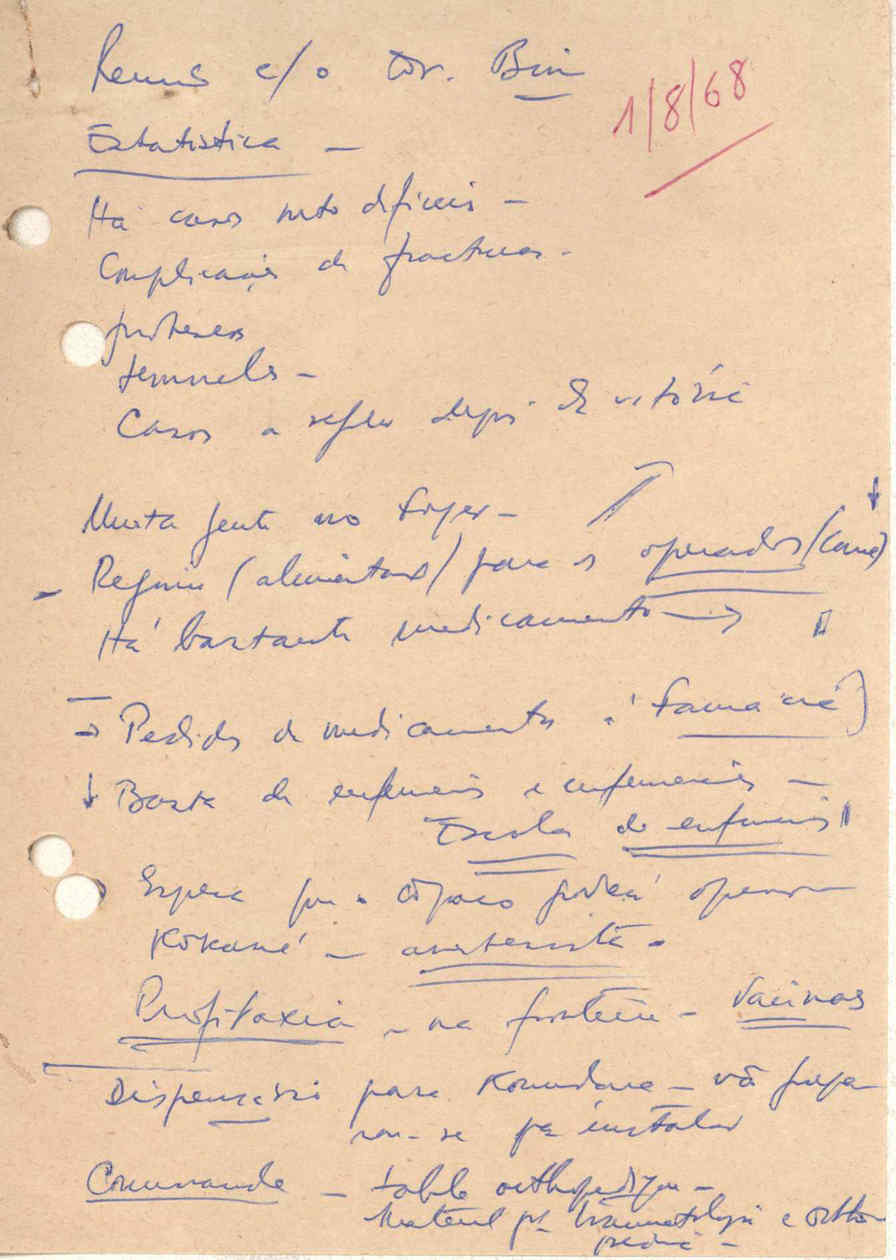 Reunião c/ o Dr. Bin
1/8/68
Estatística —
Há casos muito difíceis —
Complicações de fracturas.
próteses
Casos a depois da vitória
Muita gente no Foyer —
— Regime (alimentar) para os operados (carne)
Há bastante medicamento →
→ Pedidos de medicamentos à farmácia)
↓ de enfermeiros e enfermeiras —
Escola de enfermeiros
Espera que o poderá operar
— maternité.
Profilaxia — na fronteira — Vacinas
Dispensário para Koundara — vão
para instalar
Commande — table orthopédique —
Material pª traumatologia e ortho-
pedia —